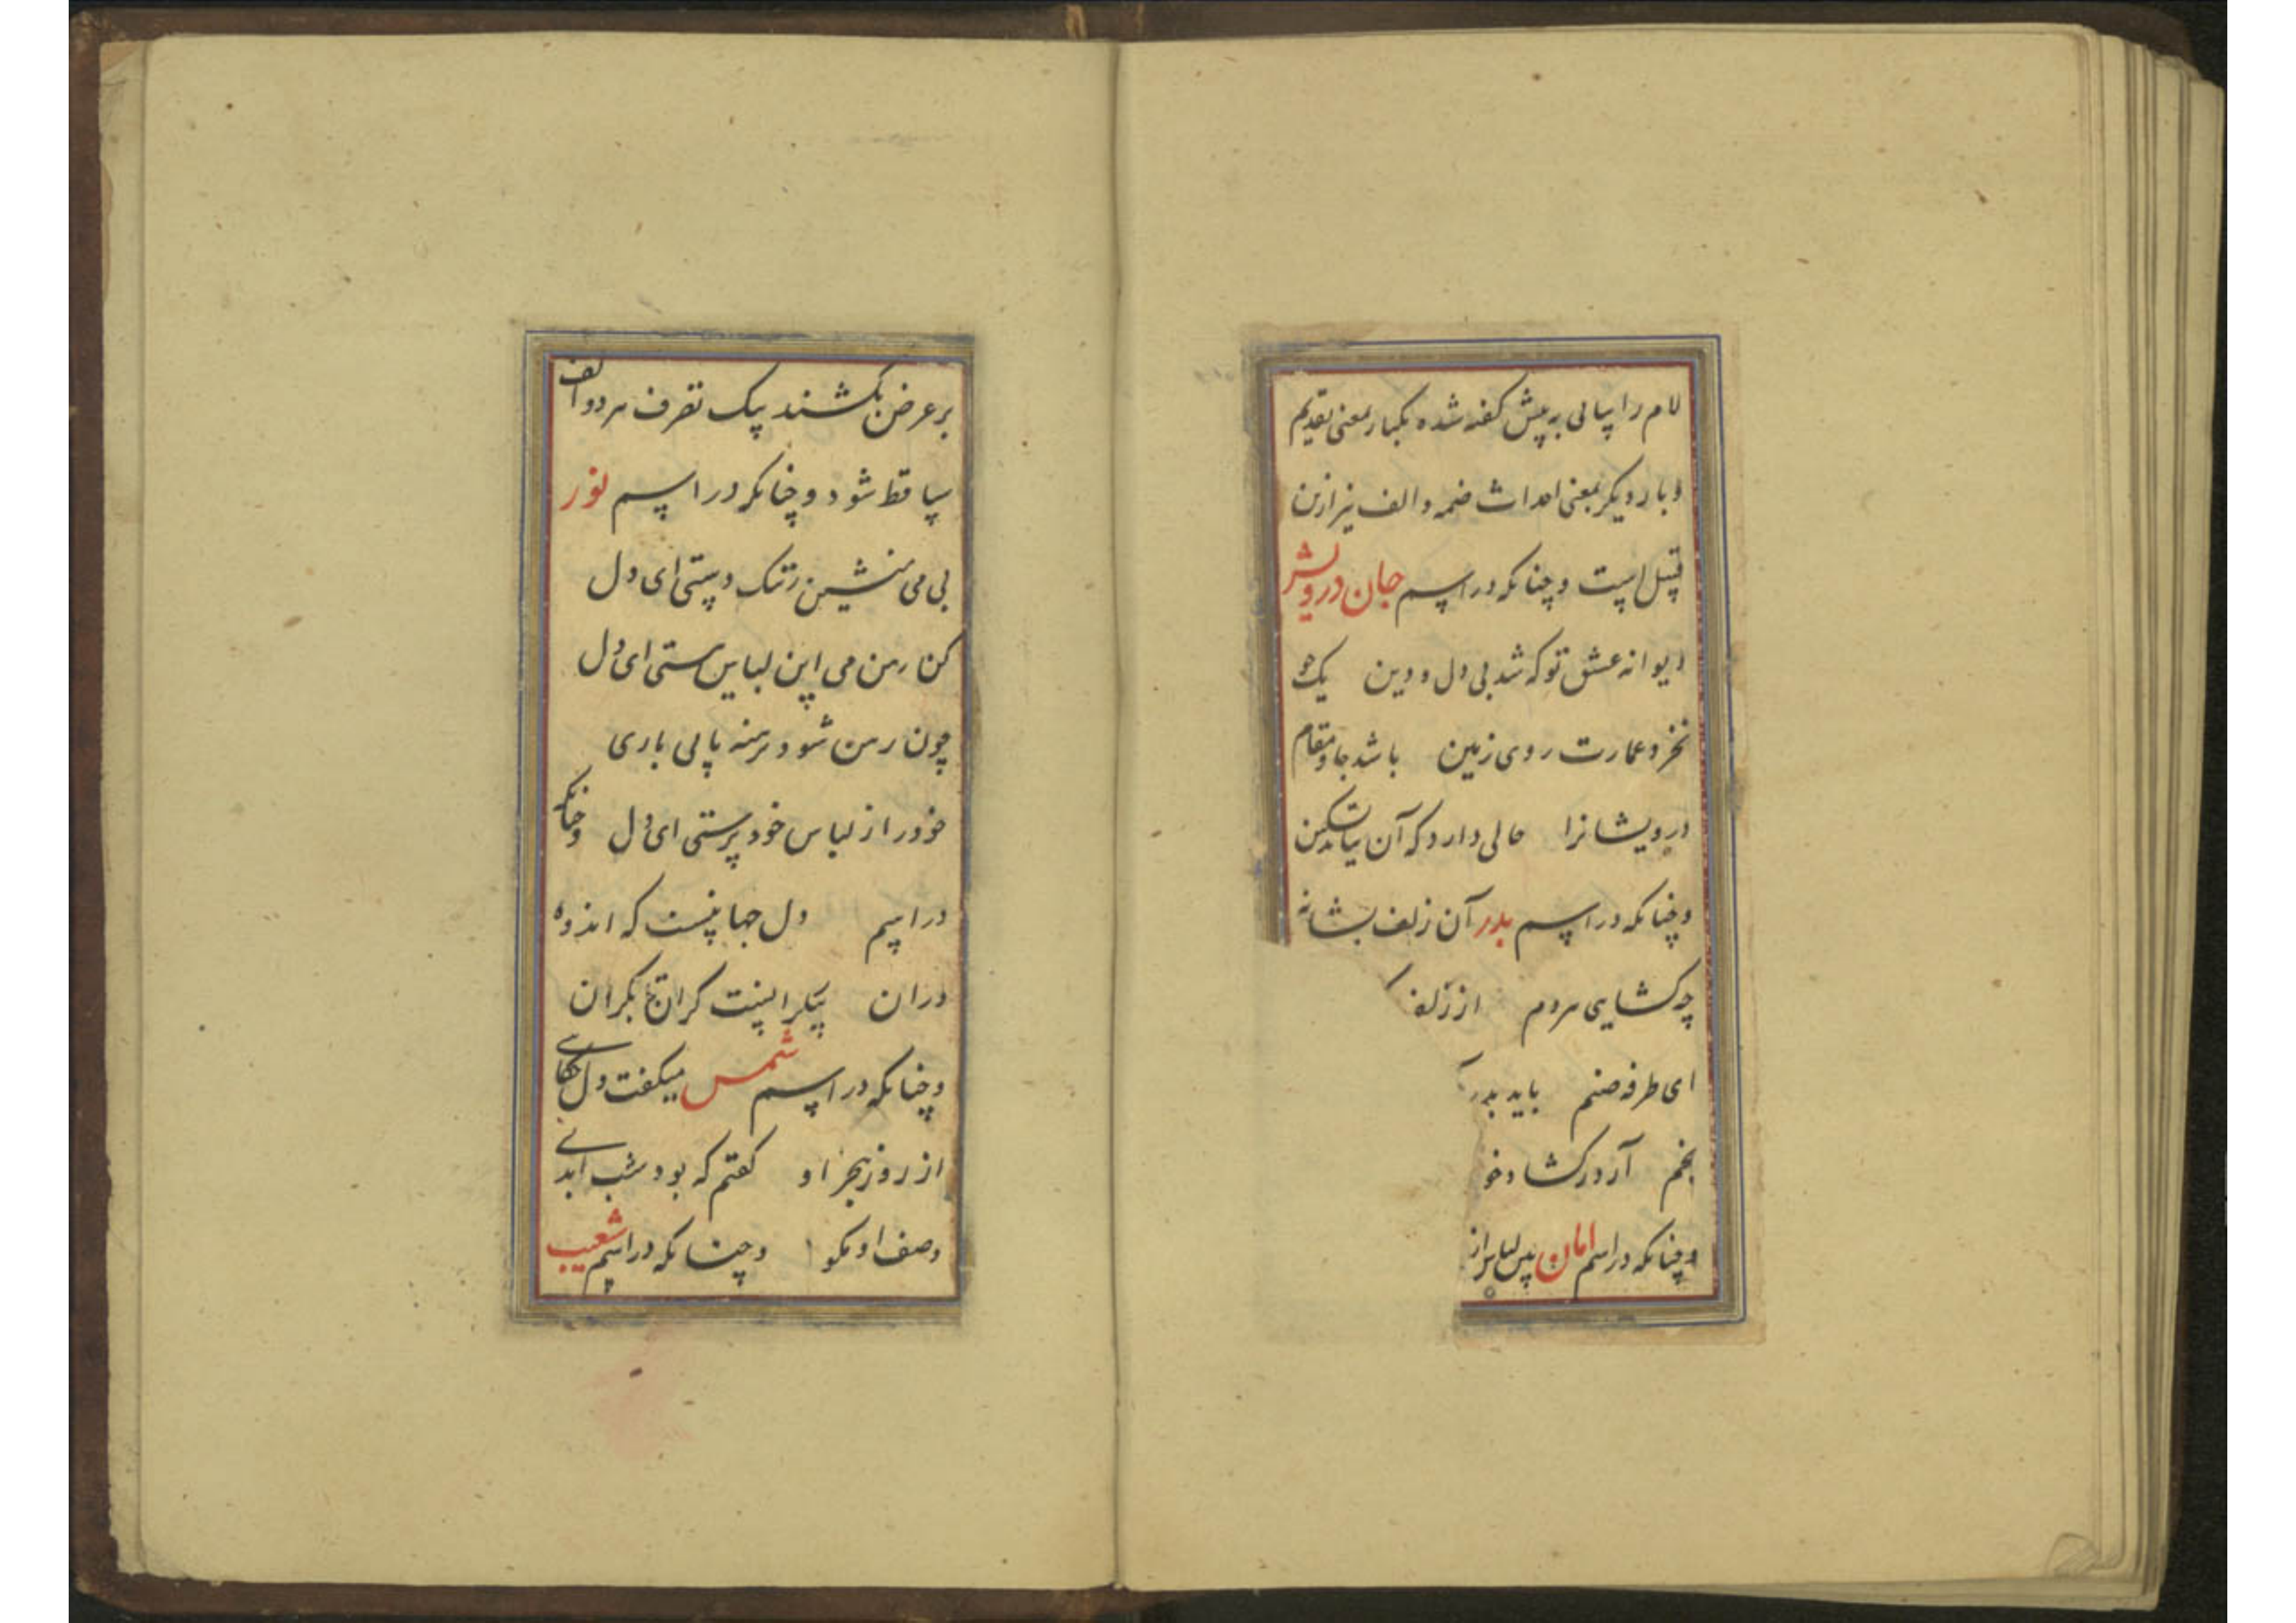 لام را پیایی به پیش گفته شده یکبار بمعنی تقدیم
و بار دیگر بمعنی احداث ضمه و الف نیز ازین
قبیل است و چنانکه در اسم جان درویش
دیوانه عشق تو که شد بی دل و دین یک جو
نخرد عمارت روی زمین باشد جا و مقام
درویشانرا حالی دارد که آن
و چنانکه در اسم بدر آن زلف بشانه
چه کشایی هر دم از زلف
ای طرفه صنم باید بدر
بخم آر در کشا و خو
و چنانکه در اسم امان پس لباس از
بر عرض بکشند یک تصرف هر دو الف
ساقط شود و چنانکه در اسم نور
بی می منشین ز تنک دستی ای دل
کن رهن می این لباس هستی ای دل
چون رهن شود برهنه پایی باری
خود را ز لباس خود پرستی ای دل و چنانکه
در اسم دل جهانیست که اندوه
دران پیکرانیست کران تا بکران
و چنانکه در اسم شمس میگفت دل حکایتی
از روز هجر او گفتم که بود شب ابدی
وصف او بگو و چنانکه در اسم شعیب